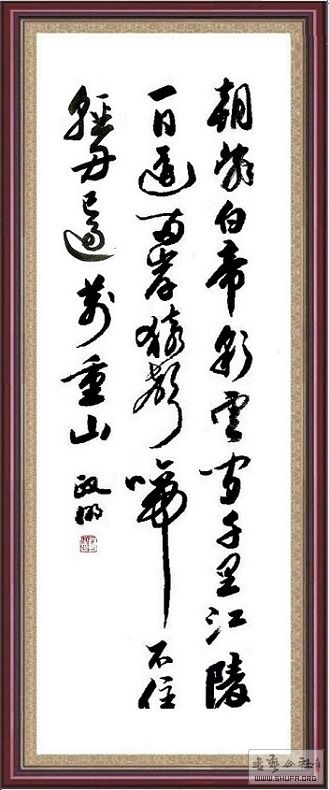 朝辞白帝彩雲间千里江陵
一日還两岸猿聲啼不住
輕舟已過萬重山
政
书艺公社
WWW.SHUFA.ORG